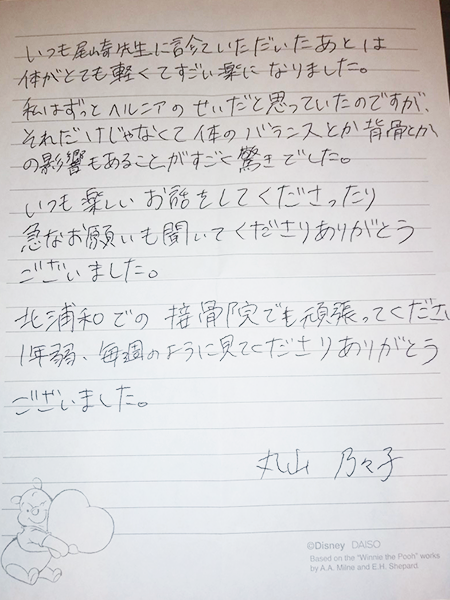 いつも尾崎先生に診ていただいたあとは
体がとても軽くてすごい楽になりました。
私はずっとヘルニアのせいだと思っていたのですが、
それだけじゃなくて体のバランスとか背骨とか
の影響もあることがすごく驚きでした。
いつも楽しいお話をしてくださったり
急なお願いも聞いてくださりありがとう
ございました。
北浦和での接骨院でも頑張ってくださ
1年弱、毎週のように見てくださりありがとう
ございました。
丸山 乃々子
©Disney DAISO
Based on the "Winnie the Pooh" works
by A.A. Milne and E.H. Shepard.